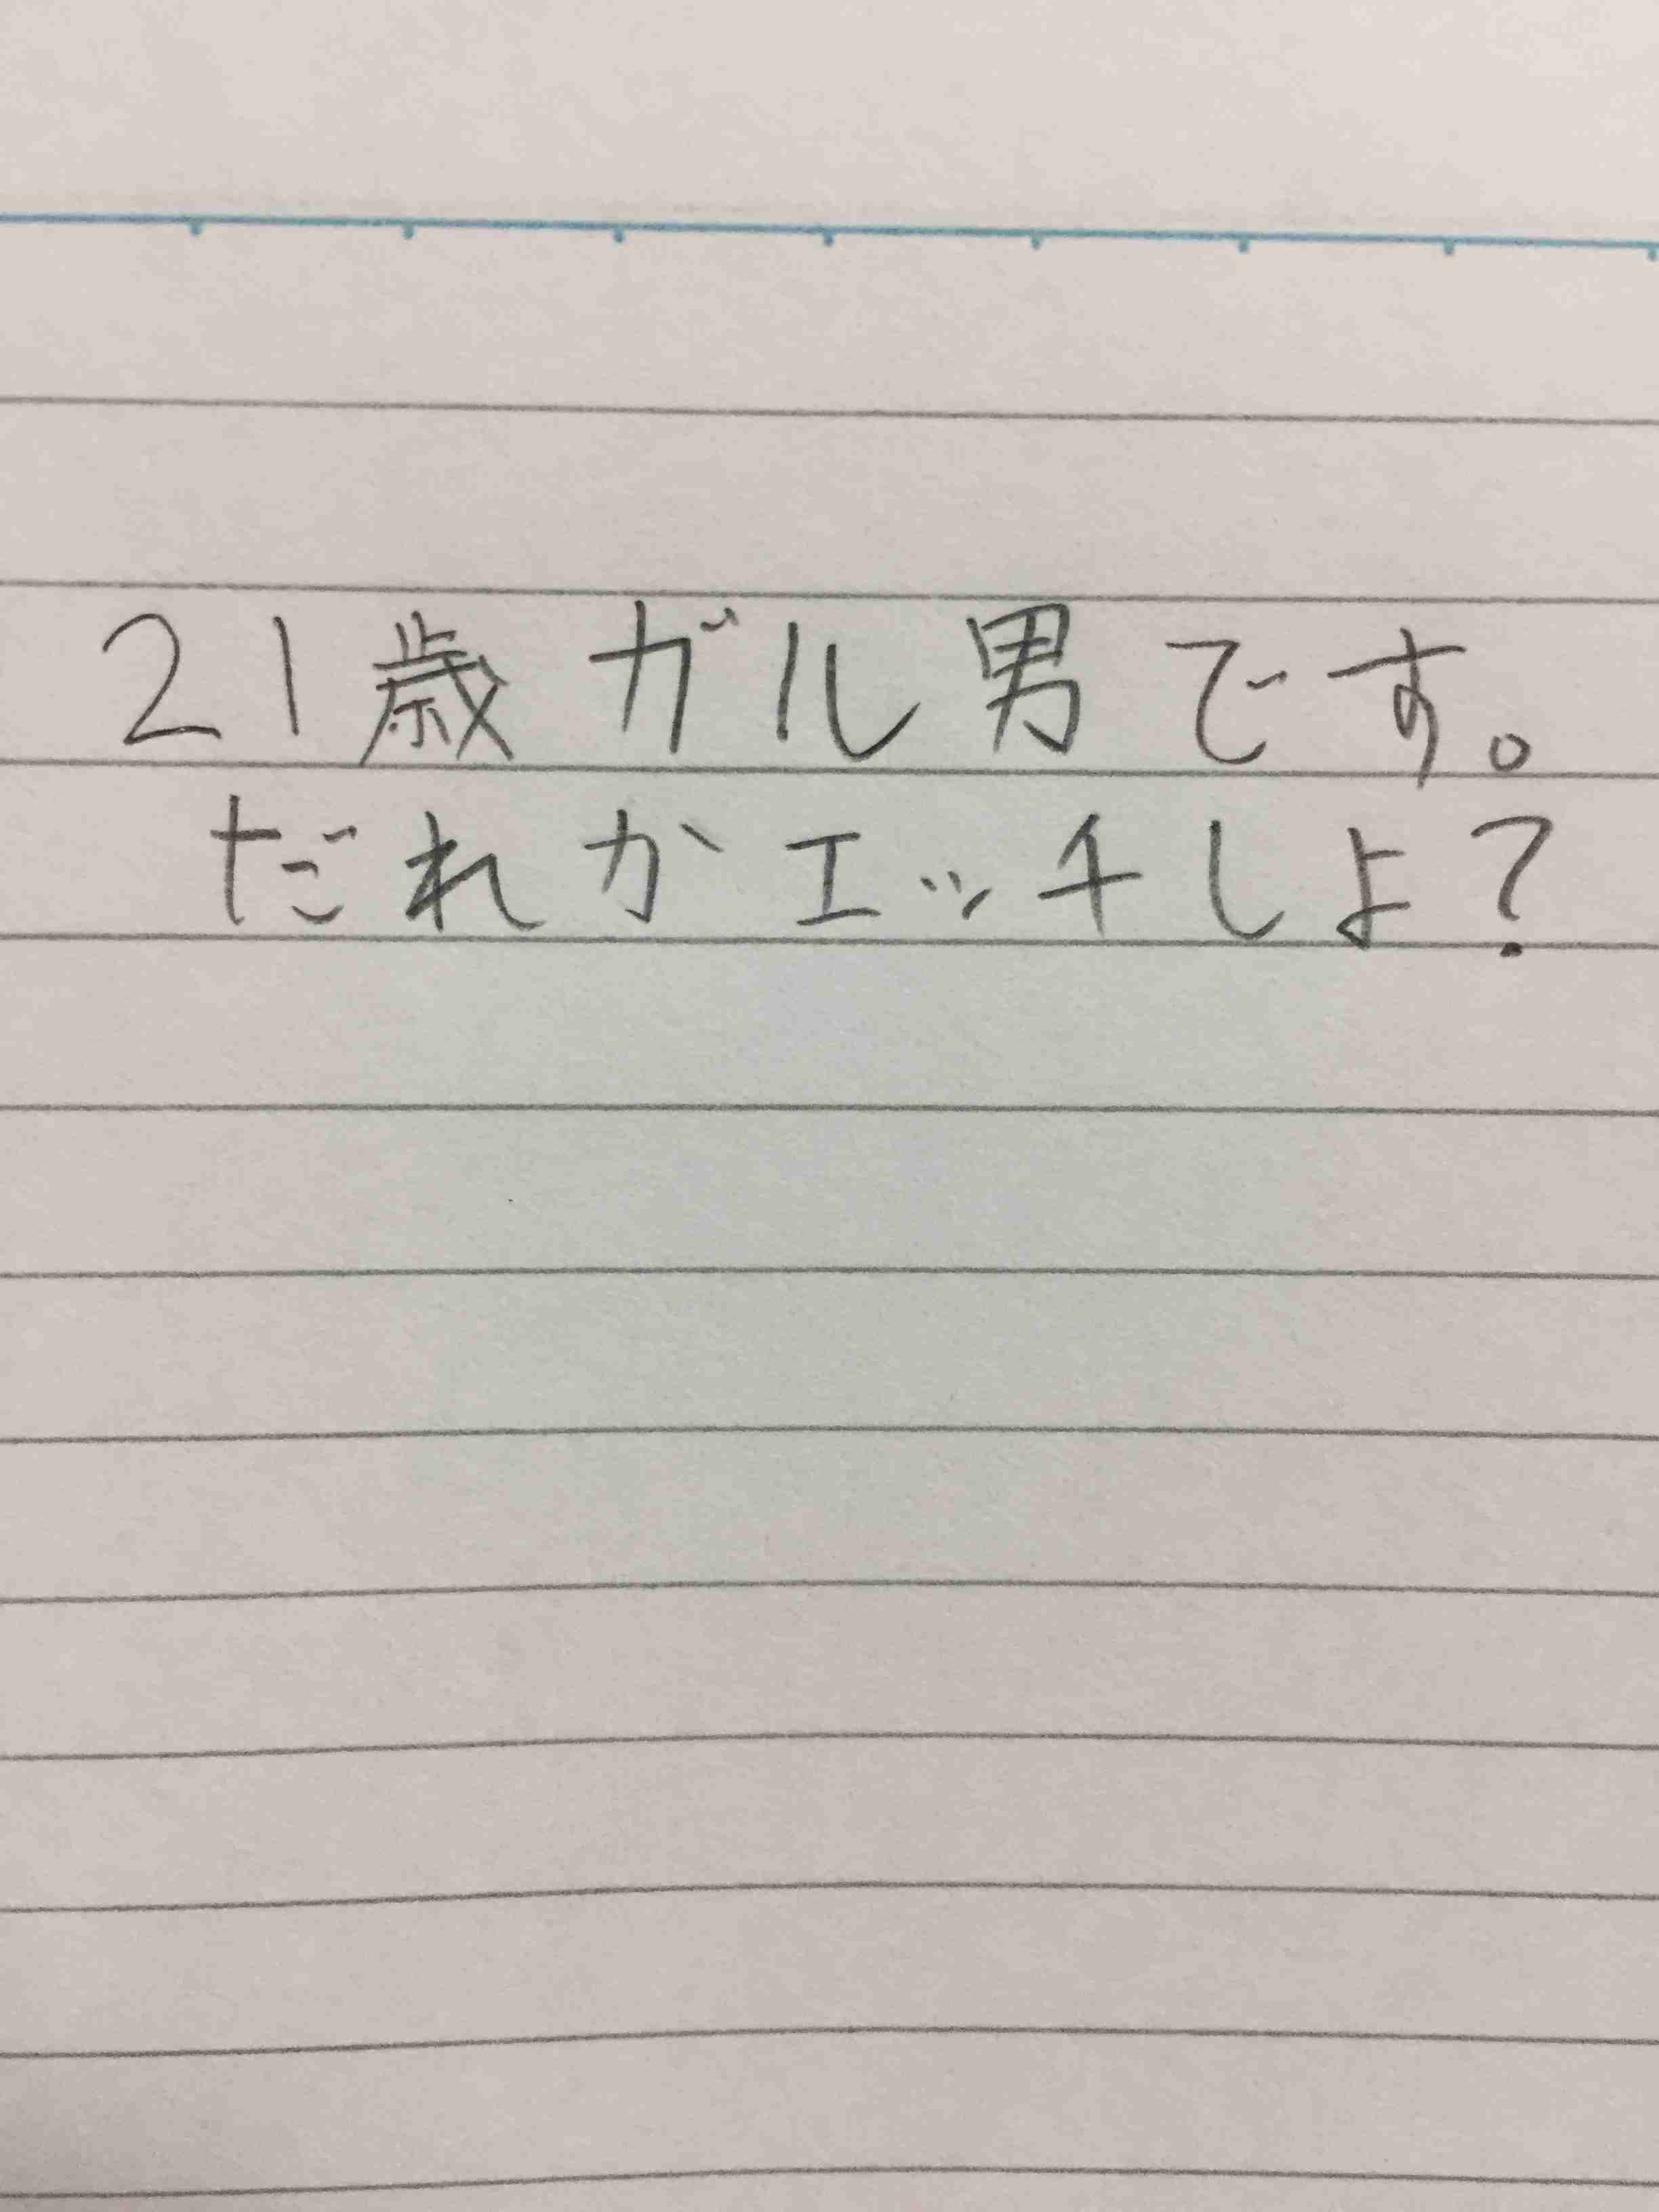 21歳ガル男です。
だれかエッチしよ?